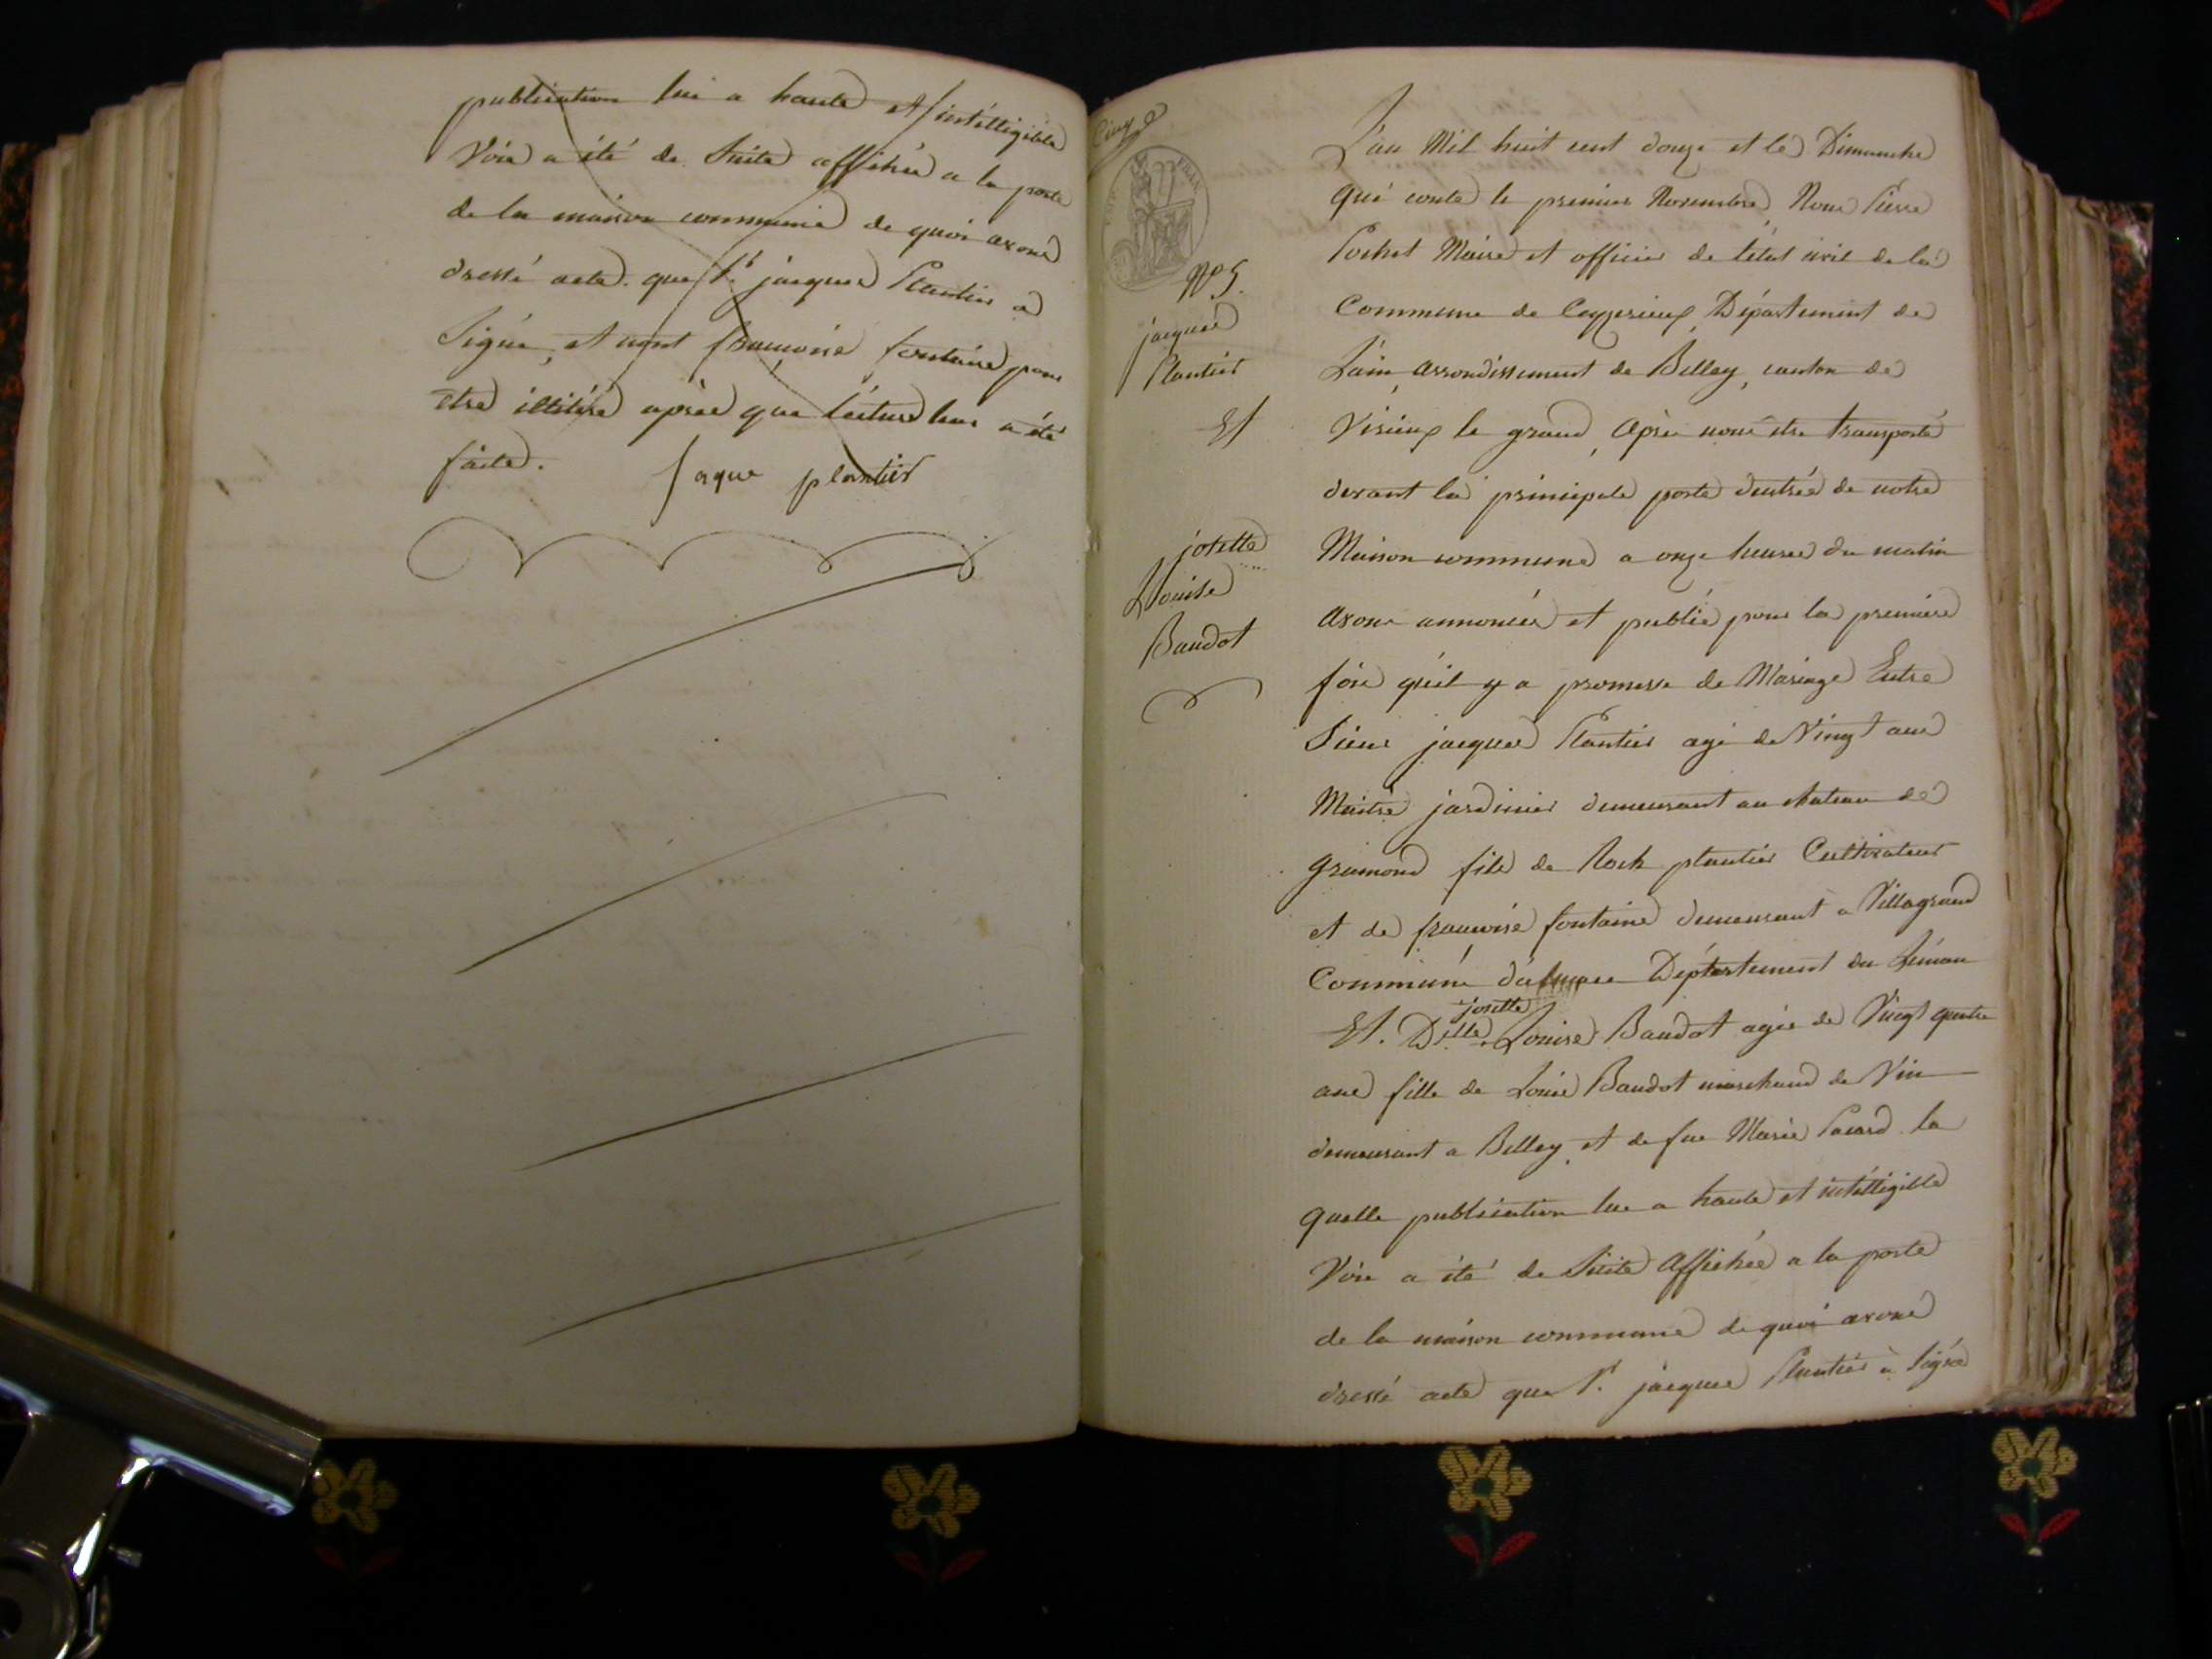 publication lue a haute et intélligible
Voie a été de Suite affichée a la porte
de la maison commune de quoi avons
dressé acte. que Sr. jacques Plantier a
Signé, et nont francoise fontaine pour
etre illitéré après que lecture leur a été
faite. Jaque plantier
Cinq
EMP. FRAN.
N° 5.
jacques
Plantier
Et
josette
Louise
Baudot
L'an Mil huit cent douze et le Dimanche
qui conte le premier Novembre, Nous Pierre
Pochet Maire et officier de l'état civil de la
Commune de Ceyzerieux, Département de
L'ain, arrondissement de Belley, canton de
Virieux le grand, Après nous etre transporté
devant la principale porte d'entrée de notre
Maison commune a onze heures du matin
avons annoncée et publié pour la première
fois qu'il y a promesse de Mariage Entre
Sieur jacques Plantier agé de Vingt ans
Maitre jardinier demeurant au chateau de
gramond fils de Rock plantier Cultivateur
et de francoise fontaine demeurant a Villagrand
Commune Département du Léman
Et. Dlle. josette Louise Baudot agée de Vingt quatre
ans fille de Louis Baudot marchand de Vin
demeurant a Belley et de fue Marie Pacard la
quelle publication lue a haute et intélligible
Voie a été de Suite Affichée a la porte
de la maison commune de quoi avons
dressé acte que Sr. jacques Plantier a Signé